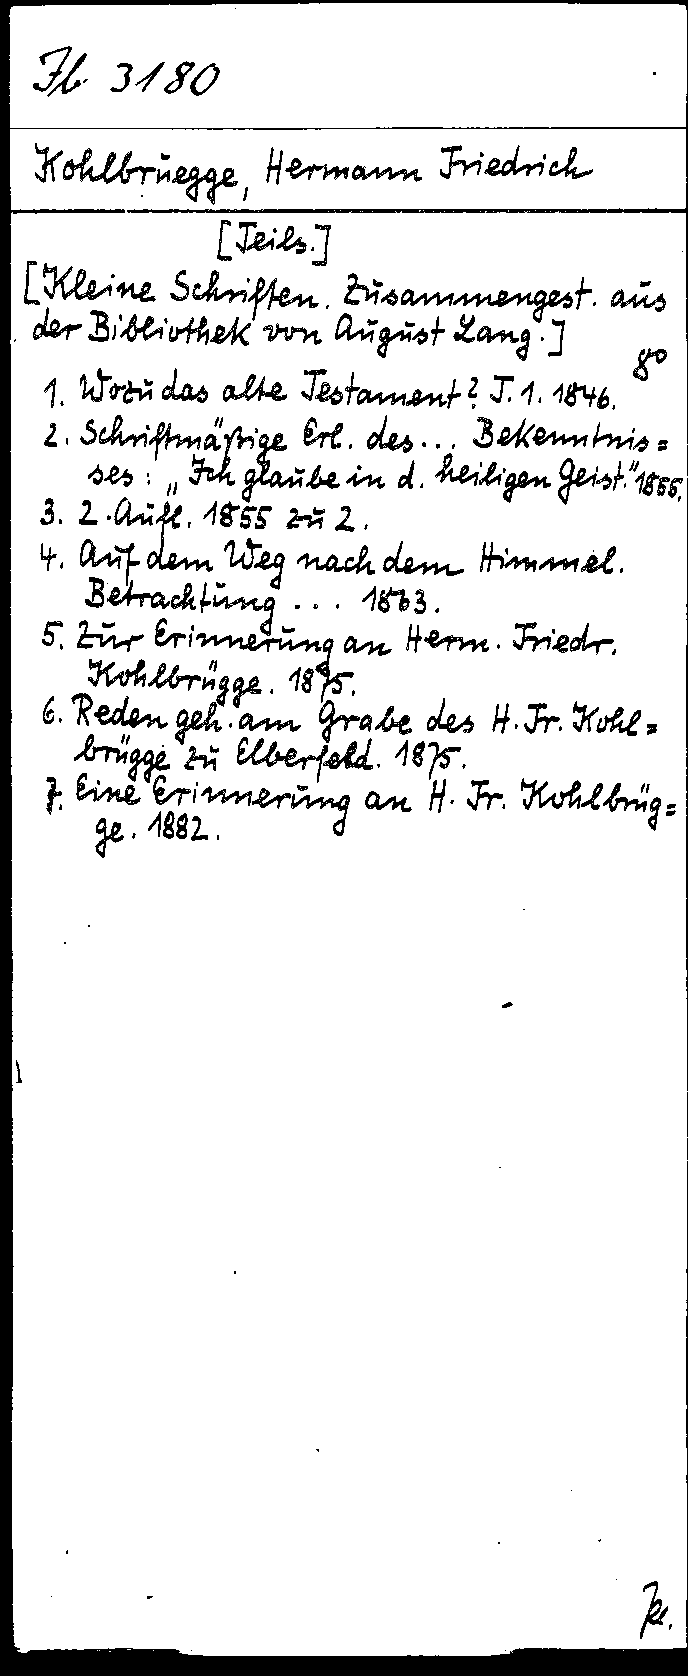 Jb 3180
Kohlbruegge, Hermann Friedrich
[Teils.]
[Kleine Schriften. Zusammengest. aus
der Bibliothek von August Lang.]
8°
1. Wozu das alte Testament? T. 1. 1846.
2. Schriftmäßige Erl. des... Bekenntnis=
ses: „Ich glaube in d. heiligen Geist." 1855.
3. 2. Aufl. 1855 zu 2.
4. Auf dem Weg nach dem Himmel.
Betrachtung ... 1863.
5. Zur Erinnerung an Herm. Friedr.
Kohlbrügge. 1875.
6. Reden geh. am Grabe des H. Fr. Kohl=
brügge zu Elberfeld. 1875.
7. Eine Erinnerung an H. Fr. Kohlbrüg=
ge. 1882.